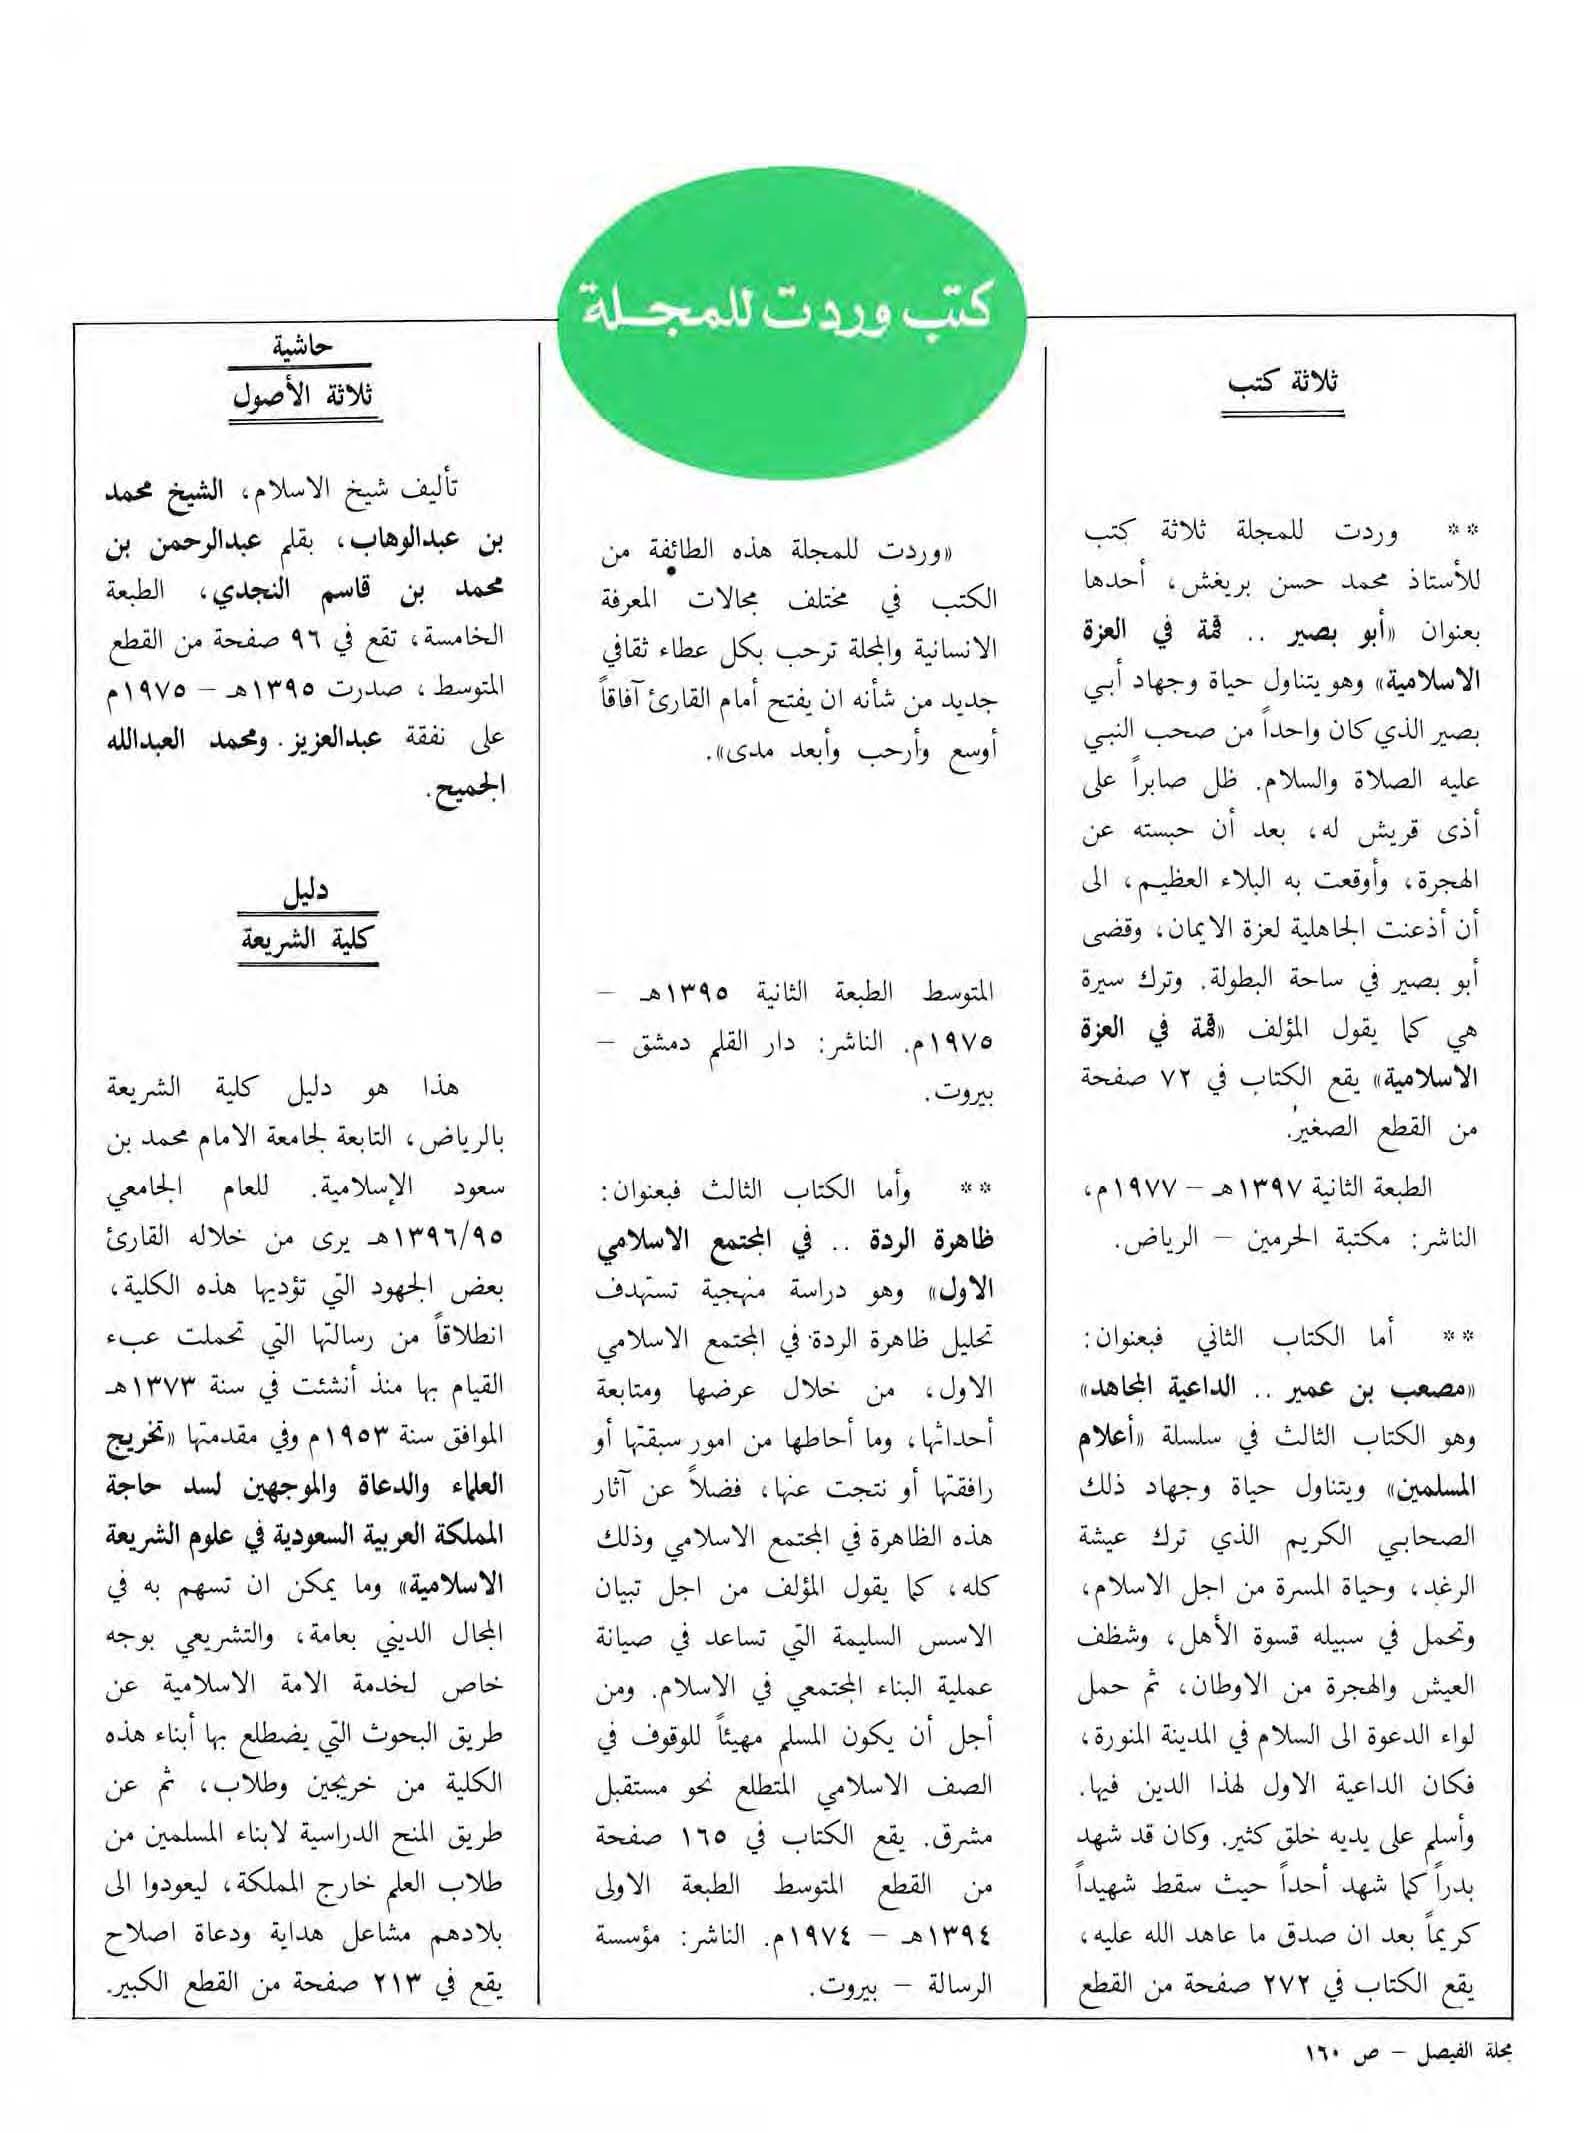 كتب وردت للمجلة
«وردت للمجلة هذه الطائفة من
الكتب في مختلف مجالات المعرفة
الانسانية والمجلة ترحب بكل عطاء ثقافي
جديد من شأنه ان يفتح أمام القارئ آفاقاً
أوسع وأرحب وأبعد مدى».
ثلاثة كتب
** وردت للمجلة ثلاثة كتب
للأستاذ محمد حسن بريغش، أحدها
بعنوان «أبو بصير .. قمة في العزة
الاسلامية» وهو يتناول حياة وجهاد أبي
بصير الذي كان واحداً من صحب النبي
عليه الصلاة والسلام. ظل صابراً على
أذى قريش له، بعد أن حبسته عن
الهجرة، وأوقعت به البلاء العظيم، الى
أن أذعنت الجاهلية لعزة الايمان، وقضى
أبو بصير في ساحة البطولة. وترك سيرة
هي كما يقول المؤلف «قمة في العزة
الاسلامية» يقع الكتاب في ٧٢ صفحة
من القطع الصغير.
الطبعة الثانية ١٣٩٧هـ – ١٩٧٧م،
الناشر: مكتبة الحرمين – الرياض.
** أما الكتاب الثاني فبعنوان:
«مصعب بن عمير .. الداعية المجاهد»
وهو الكتاب الثالث في سلسلة «أعلام
المسلمين» ويتناول حياة وجهاد ذلك
الصحابي الكريم الذي ترك عيشة
الرغد، وحياة المسرة من اجل الاسلام،
وتحمل في سبيله قسوة الأهل، وشظف
العيش والهجرة من الاوطان، ثم حمل
لواء الدعوة الى السلام في المدينة المنورة،
فكان الداعية الاول لهذا الدين فيها.
وأسلم على يديه خلق كثير. وكان قد شهد
بدراً كما شهد أحداً حيث سقط شهيداً
كريماً بعد ان صدق ما عاهد الله عليه،
يقع الكتاب في ٢٧٢ صفحة من القطع
المتوسط الطبعة الثانية ١٣٩٥هـ –
١٩٧٥م. الناشر: دار القلم دمشق –
بيروت.
** وأما الكتاب الثالث فبعنوان:
ظاهرة الردة .. في المجتمع الاسلامي
الاول» وهو دراسة منهجية تستهدف
تحليل ظاهرة الردة في المجتمع الاسلامي
الاول، من خلال عرضها ومتابعة
أحداثها، وما أحاطها من امور سبقتها أو
رافقتها أو نتجت عنها، فضلاً عن آثار
هذه الظاهرة في المجتمع الاسلامي وذلك
كله، كما يقول المؤلف من اجل تبيان
الاسس السليمة التي تساعد في صيانة
عملية البناء المجتمعي في الاسلام. ومن
أجل أن يكون المسلم مهيئاً للوقوف في
الصف الاسلامي المتطلع نحو مستقبل
مشرق. يقع الكتاب في ١٦٥ صفحة
من القطع المتوسط الطبعة الاولى
١٣٩٤هـ – ١٩٧٤م. الناشر: مؤسسة
الرسالة – بيروت.
حاشية
ثلاثة الأصول
تأليف شيخ الاسلام، الشيخ محمد
بن عبدالوهاب، بقلم عبدالرحمن بن
محمد بن قاسم النجدي، الطبعة
الخامسة، تقع في ٩٦ صفحة من القطع
المتوسط، صدرت ١٣٩٥هـ – ١٩٧٥م
على نفقة عبدالعزيز. ومحمد العبدالله
الجميح.
دليل
كلية الشريعة
هذا هو دليل كلية الشريعة
بالرياض، التابعة لجامعة الامام محمد بن
سعود الإسلامية. للعام الجامعي
١٣٩٦/٩٥هـ يرى من خلاله القارئ
بعض الجهود التي تؤديها هذه الكلية،
انطلاقاً من رسالتها التي تحملت عبء
القيام بها منذ أنشئت في سنة ١٣٧٣هـ
الموافق سنة ١٩٥٣م وفي مقدمتها «تخريج
العلماء والدعاة والموجهين لسد حاجة
المملكة العربية السعودية في علوم الشريعة
الاسلامية» وما يمكن ان تسهم به في
المجال الديني بعامة، والتشريعي بوجه
خاص لخدمة الامة الاسلامية عن
طريق البحوث التي يضطلع بها أبناء هذه
الكلية من خريجين وطلاب، ثم عن
طريق المنح الدراسية لابناء المسلمين من
طلاب العلم خارج المملكة، ليعودوا الى
بلادهم مشاعل هداية ودعاة اصلاح
يقع في ٢١٣ صفحة من القطع الكبير.
مجلة الفيصل – ص ١٦٠